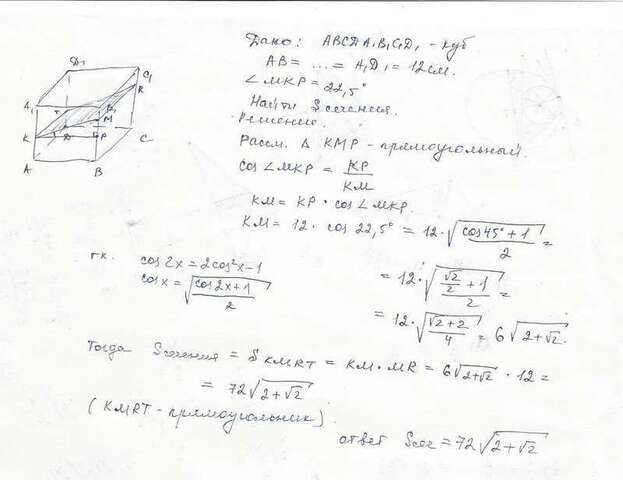 Дано: ABCDA₁B₁C₁D₁ - куб
AB = ... = A₁D₁ = 12 см.
∠MKP = 22,5°
Найти S сечения.
Решение.
Рассм. Δ KMP - прямоугольный.
cos ∠MKP = KP/KM
KM = KP · cos ∠MKP.
KM = 12 · cos 22,5° = 12 · √((cos 45° + 1)/2) =
т.к. cos 2x = 2cos²x - 1
cos x = √((cos 2x + 1)/2)
= 12 · √((√2/2 + 1)/2) =
= 12 · √((√2 + 2)/4) = 6√(2 + √2).
Тогда Sсечения = S KMRT = KM · MR = 6√(2+√2) · 12 =
= 72√(2 + √2)
(KMRT - прямоугольник)
ответ Sсеч = 72√(2 + √2)
D₁
C₁
R
A₁
T
B₁
M
K
D
P
C
A
B